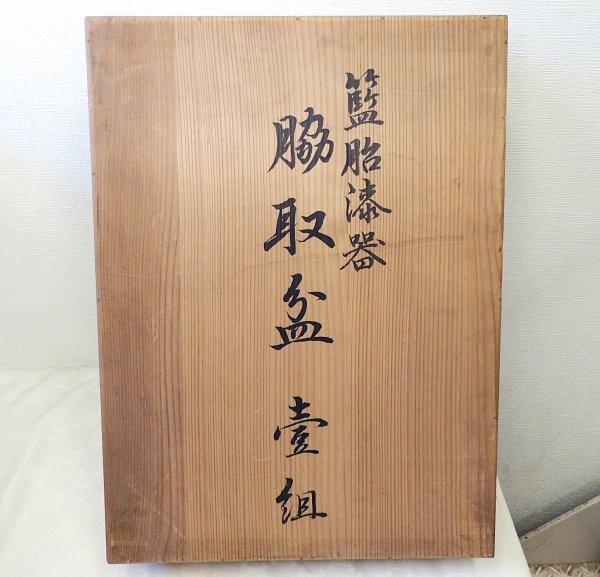 籃胎漆器
脇取盆 壹組